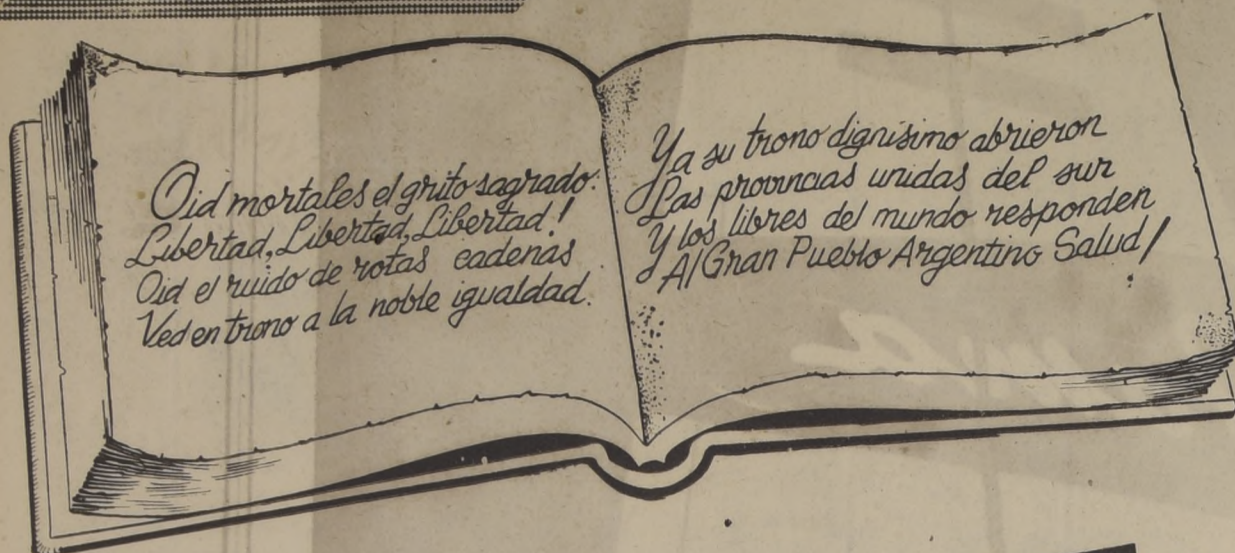 Oid mortales el grito sagrado:
Libertad, Libertad, Libertad!
Oid el ruido de rotas cadenas
Ved en trono a la noble igualdad.
Ya su trono dignísimo abrieron
Las provincias unidas del sur
Y los libres del mundo responden
Al Gran Pueblo Argentino Salud!